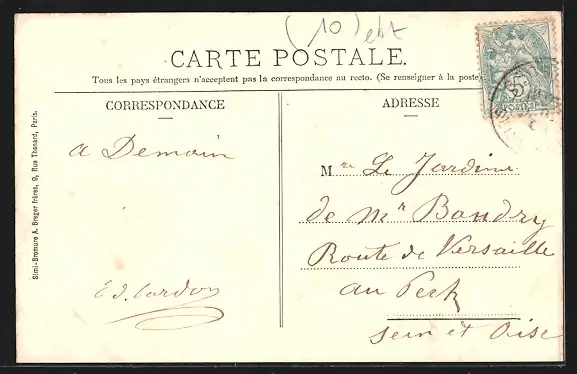 (10) ebt
CARTE POSTALE.
Tous les pays étrangers n'acceptent pas la correspondance au recto. (Se renseigner à la poste)
CORRESPONDANCE
ADRESSE
a Demain
E J. Cardon
M re Le Jardine
de Mr Baudry
Route de Versaille
au Perk
Sein et Oise
Simi-Bromure A. Breger frères, 9, Rue Thenard, Paris.
5c
POSTES